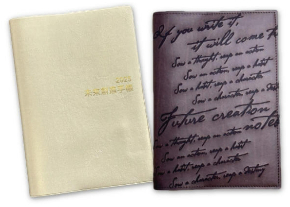 2023
If you write it,
it will come tr
Sow a thought, reap an action
Sow an action, reap a habit
Sow a habit, reap a character
Sow a character, reap a destiny
Future creation
notebo
Sow a thought, reap an action
Sow an action, reap a habit
Sow a habit, reap a character
Sow a character, reap a destiny